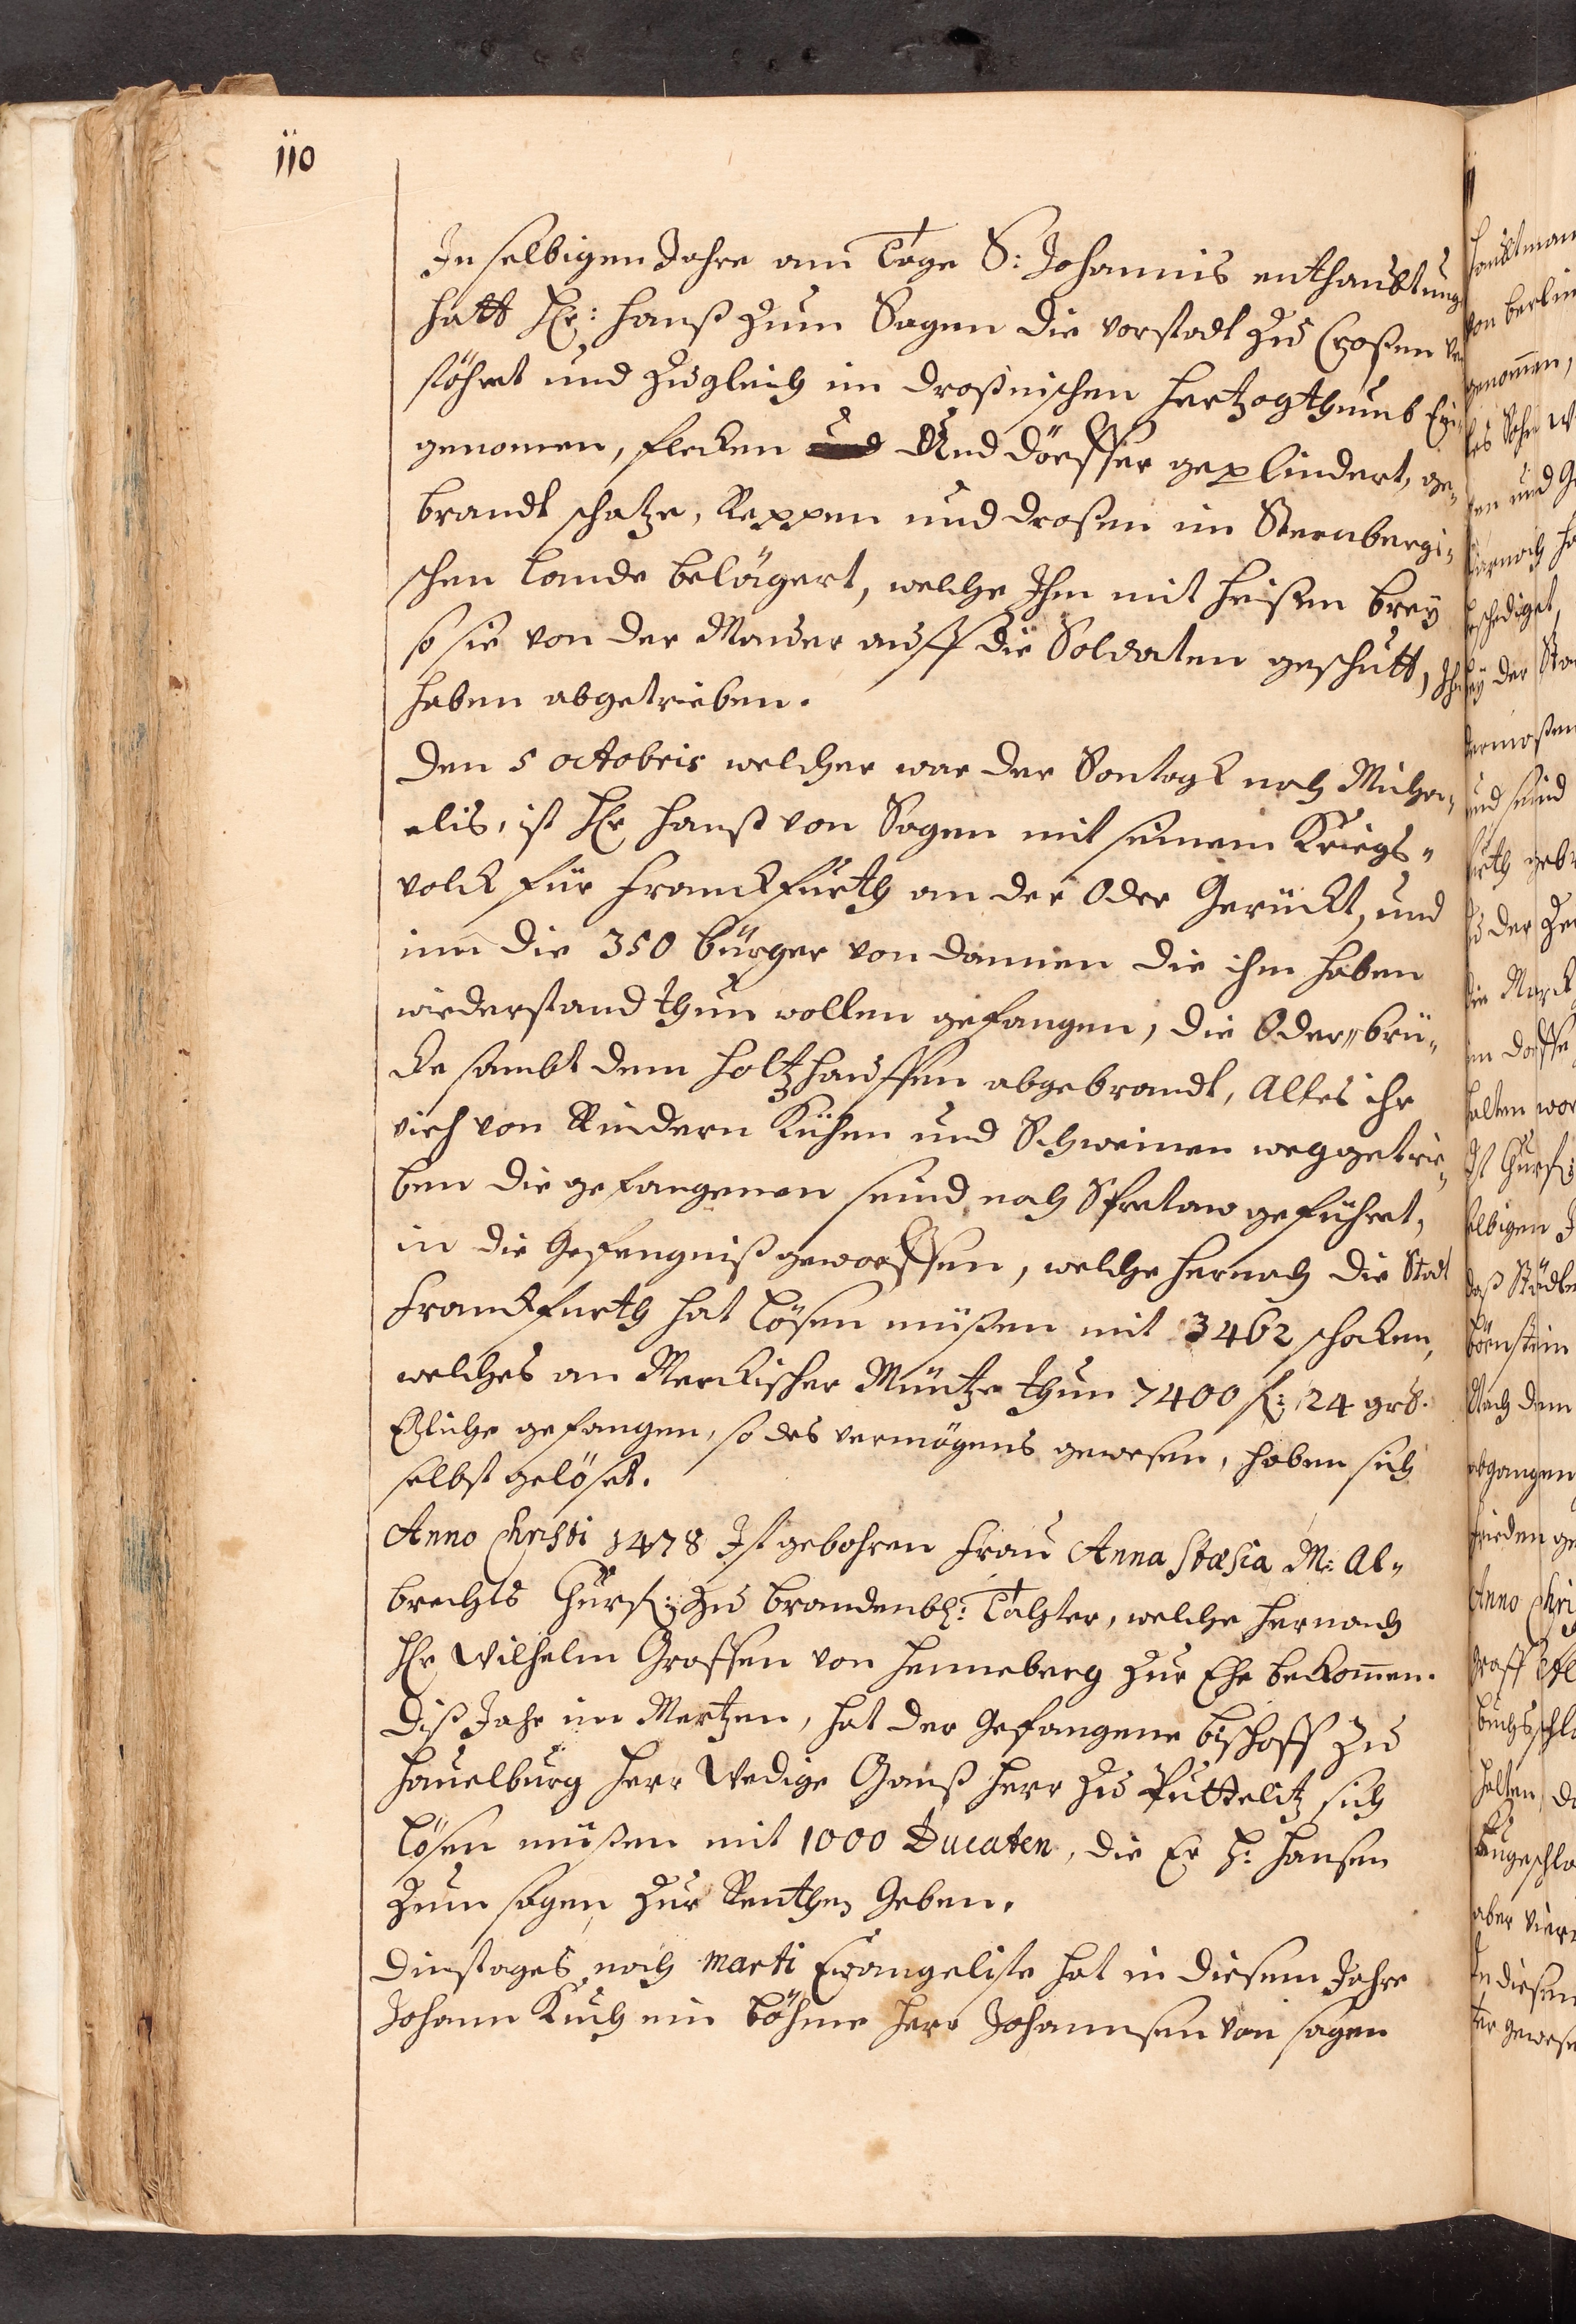 110
In selbigen Jahre am Tage S: Johannis enthaubtung
hatt Hr: Hanß zum Sagen die vorstadt zu Croßen ver
stöhret und zugleich im Croßnischen Hertzogthumb Ein
genomen, flecken und Und dörffer geplindert, ge„
brandt schatze, Reppen und Droßen im Sternbergi„
schen Lande belägert, welche Ihn mit heißen brey
so sie von der Mauer auff die Soldaten geschutt, Ihn
haben abgetrieben.
Den 5 octobris welcher war der Sontagk nach Micha„
elis, ist Hr Hanß von Sagen mit seinem Kriegs„
volck für Franckfurth an der Oder Gerückt, und
im die 350 bürger von dannen die ihm haben
wiederstand thun wollen gefangen, die Oder„brü„
cke sambt dem holtzhauffen abgebrandt, Alles ihr
vieh von Rindern Kühen und Schweinen weggetrie„
ben die gefangenen seind nach Sfretaw geführet,
in die Gefengniß geworffen, welche hernach die Stadt
Franckfurth hat lösen müßen mit 3462 schocken,
welches an Merckischer Müntze thun 7400 fl: 24 grs.
Etliche gefangen, so des vermögens gewesen, haben sich
selbst gelöset.
Anno Christi 1478 Ist gebohren Frau Anna Stasia M: Al„
brechts Churf: zu Brandenb: Tochter, welche hernach
Hr Wilhelm Graffen von Henneberg zur Ehe bekomen.
Diß Jahr im Mertzen, hat der Gefangene bischoff zu
Hauelburg Herr Wedige Ganß Herr zu Puttelitz sich
lösen müßen mit 1000 Ducaten, die Er H: Hansen
zum sagen zur Renthen Geben.
Dinstages nach Marti Evangeliste hat in diesem Jahre
Johann Kuch ein Böhme Herr Johannsen von sagen